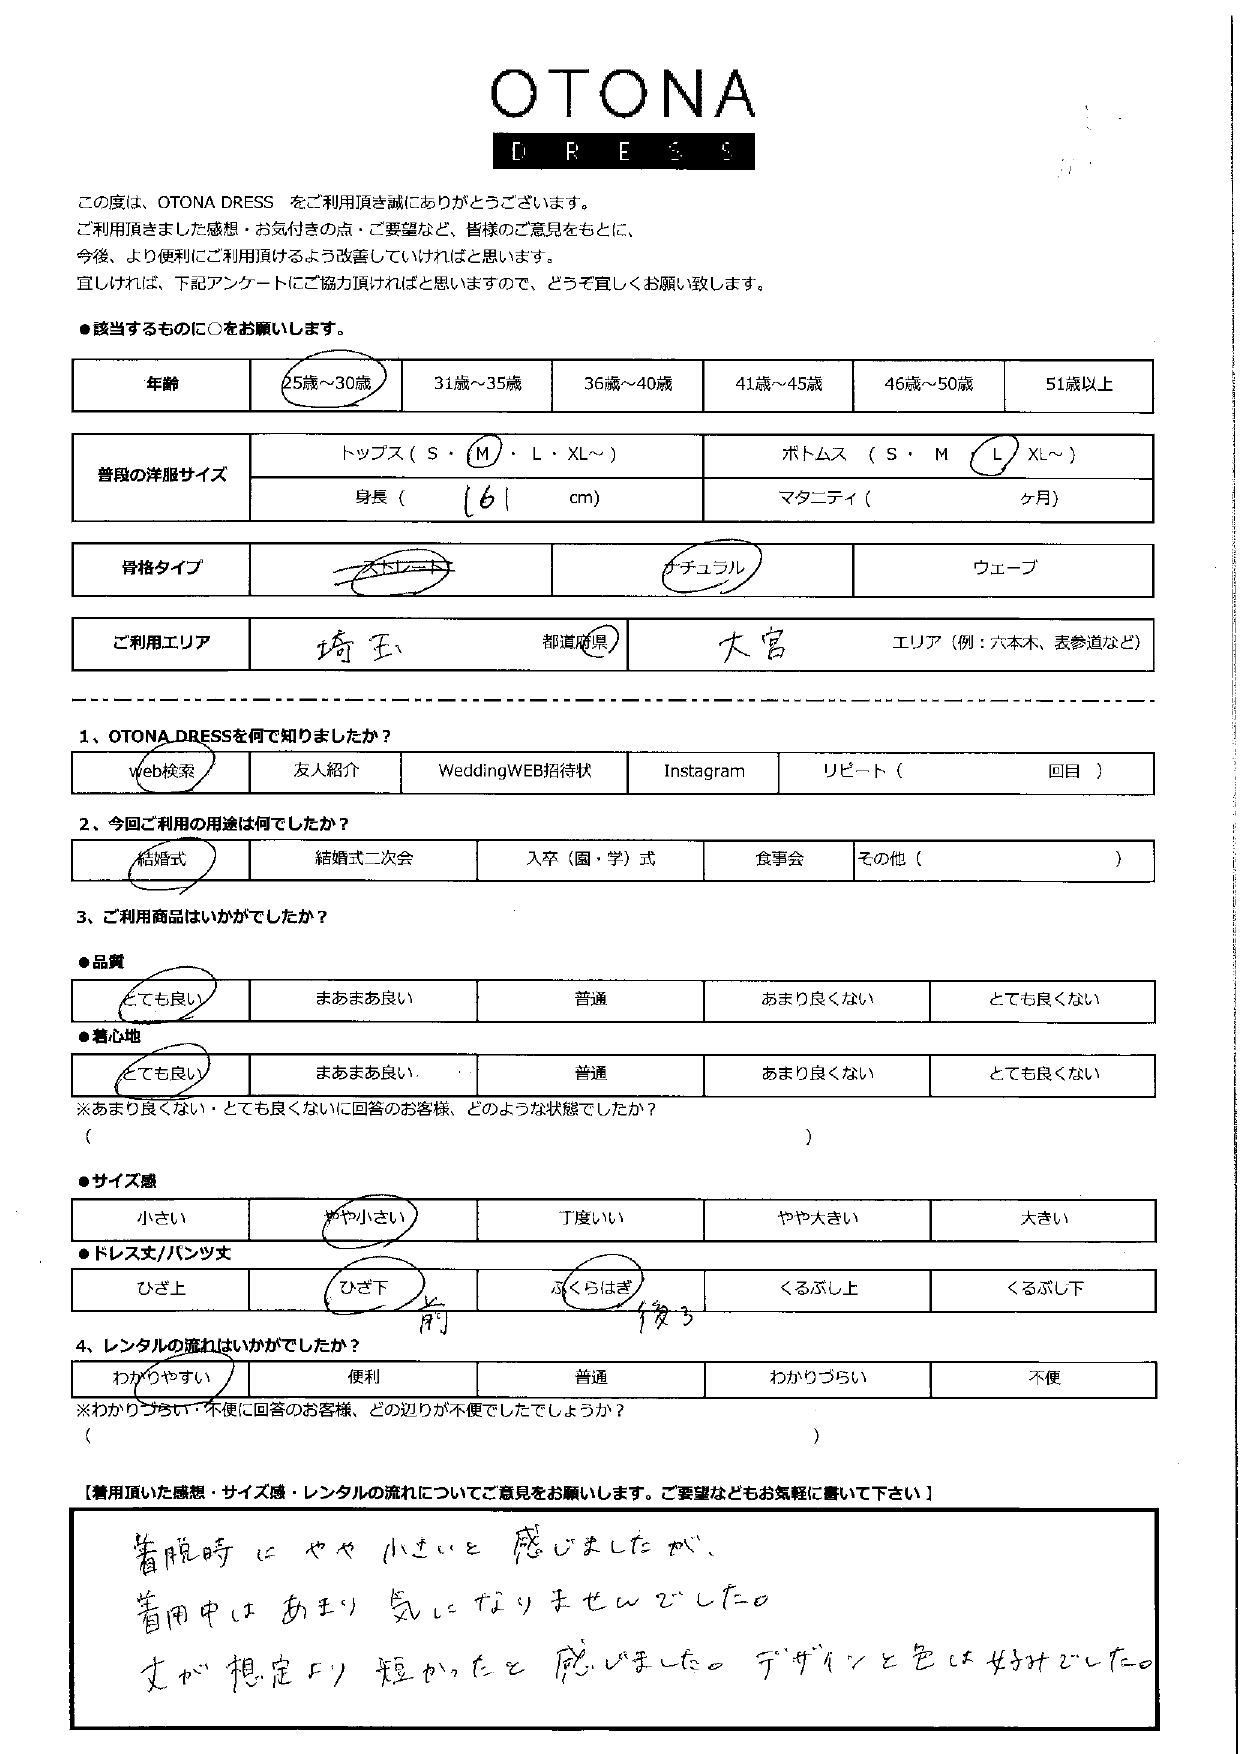 OTONA
DRESS
この度は、OTONA DRESS をご利用頂き誠にありがとうございます。
ご利用頂きました感想・お気付きの点・ご要望など、皆様のご意見をもとに、
今後、より便利にご利用頂けるよう改善していければと思います。
宜しければ、下記アンケートにご協力頂ければと思いますので、どうぞ宜しくお願い致します。
●該当するものに○をお願いします。
年齢 25歳～30歳 31歳～35歳 36歳～40歳 41歳～45歳 46歳～50歳 51歳以上
普段の洋服サイズ トップス ( S ・ M ・ L ・ XL～ ) ボトムス ( S ・ M L XL～ )
身長 ( 161 cm) マタニティ ( ヶ月)
骨格タイプ ストレート ナチュラル ウェーブ
ご利用エリア 埼玉 都道府県 大宮 エリア（例：六本木、表参道など）
1、OTONA DRESSを何で知りましたか？
web検索 友人紹介 WeddingWEB招待状 Instagram リピート ( 回目 )
2、今回ご利用の用途は何でしたか？
結婚式 結婚式二次会 入卒（園・学）式 食事会 その他 ( )
3、ご利用商品はいかがでしたか？
●品質
とても良い まあまあ良い 普通 あまり良くない とても良くない
●着心地
とても良い まあまあ良い 普通 あまり良くない とても良くない
※あまり良くない・とても良くないに回答のお客様、どのような状態でしたか？
( )
●サイズ感
小さい やや小さい 丁度いい やや大きい 大きい
●ドレス丈/パンツ丈
ひざ上 ひざ下 ふくらはぎ くるぶし上 くるぶし下
前 後ろ
4、レンタルの流れはいかがでしたか？
わかりやすい 便利 普通 わかりづらい 不便
※わかりづらい・不便に回答のお客様、どの辺りが不便でしたでしょうか？
( )
【着用頂いた感想・サイズ感・レンタルの流れについてご意見をお願いします。ご要望などもお気軽に書いて下さい】
着脱時に やや 小さいと 感じましたが、
着用中は あまり 気に なりませんでした。
丈が 想定より 短かったと 感じました。 デザインと色は好みでした。